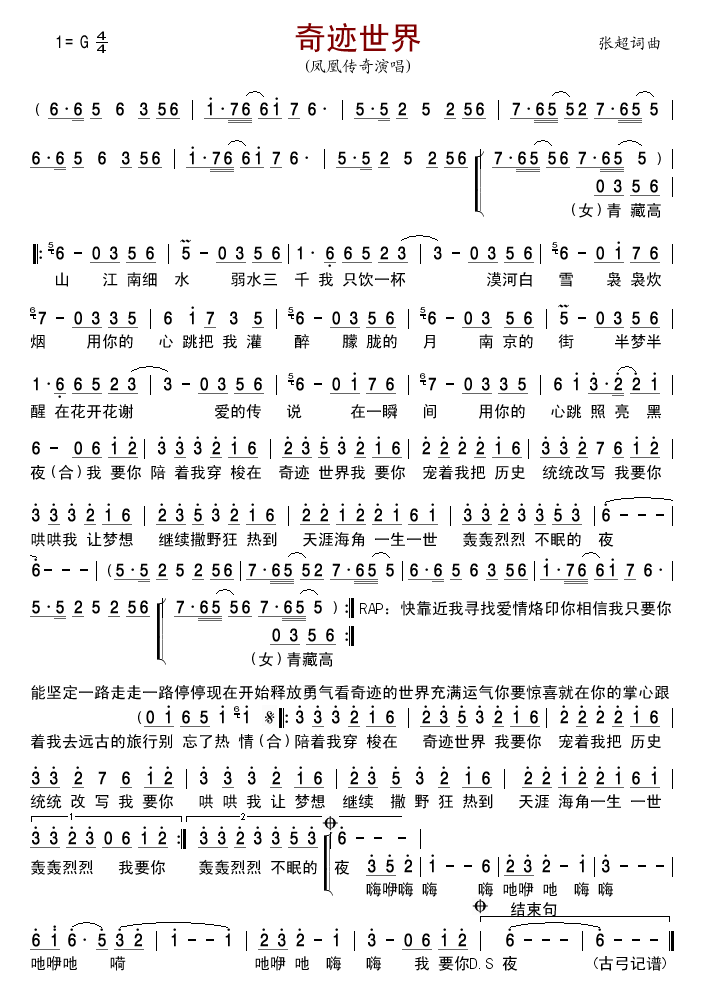 奇迹世界
1= G 4/4
张超词曲
(凤凰传奇演唱)
( 6·6 5 6 3 56 | 1·76 61 7 6· | 5·5 2 5 2 56 | 7·65 52 7·65 5 |
6·6 5 6 3 56 | 1·76 61 7 6· | 5·5 2 5 2 56 | 7·65 56 7·65 5 )
0 3 5 6 |
(女)青 藏高
‖: 6 - 0 3 5 6 | 5 - 0 3 5 6 | 1· 6 6 5 2 3 | 3 - 0 3 5 6 | 6 - 0 1 7 6 |
山 江 南细 水 弱水三 千 我 只饮一杯 漠河白 雪 袅 袅炊
7 - 0 3 3 5 | 6 1 7 3 5 | 6 - 0 3 5 6 | 6 - 0 3 5 6 | 5 - 0 3 5 6 |
烟 用你的 心 跳把 我 灌 醉 朦 胧的 月 南 京的 街 半梦半
1· 6 6 5 2 3 | 3 - 0 3 5 6 | 6 - 0 1 7 6 | 7 - 0 3 3 5 | 6 1 3· 2 2 1 |
醒 在花开花谢 爱的传 说 在一瞬 间 用你的 心跳 照 亮 黑
6 - 0 6 1 2 | 3 3 3 2 1 6 | 2 3 5 3 2 1 6 | 2 2 2 2 1 6 | 3 3 2 7 6 1 2 |
夜(合)我 要你 陪 着我穿 梭在 奇迹 世界我 要你 宠着我把 历史 统统改写 我要你
3 3 3 2 1 6 | 2 3 5 3 2 1 6 | 2 2 1 2 2 1 6 1 | 3 3 2 3 3 5 3 | 6 - - - |
哄哄我 让梦想 继续撒野狂 热到 天涯海角 一生一世 轰轰烈烈 不眠的 夜
6 - - - | (5·5 2 5 2 56 | 7·65 52 7·65 5 | 6·6 5 6 3 56 | 1·76 61 7 6· |
5·5 2 5 2 56 | 7·65 56 7·65 5 ) :‖ RAP：快靠近我寻找爱情烙印你相信我只要你
0 3 5 6 :‖
(女)青藏高
能坚定一路走走一路停停现在开始释放勇气看奇迹的世界充满运气你要惊喜就在你的掌心跟
(0 1 6 5 1 1 𝄋 ‖: 3 3 3 2 1 6 | 2 3 5 3 2 1 6 | 2 2 2 2 1 6 |
着我去远古的旅行别 忘了热 情(合)陪着我穿 梭在 奇迹世界 我要你 宠着我把 历史
3 3 2 7 6 1 2 | 3 3 3 2 1 6 | 2 3 5 3 2 1 6 | 2 2 1 2 2 1 6 1 |
统统 改 写 我 要你 哄 哄 我 让 梦想 继续 撒 野 狂 热到 天涯 海角一生 一世
1 2
3 3 2 3 0 6 1 2 :‖ 3 3 2 3 3 5 3 | 6 - - - |
轰轰烈烈 我要你 轰轰烈烈 不眠的 夜
3 5 2 | 1 - - 6 | 2 3 2 - 1 |
嗨咿嗨 嗨 嗨 吔咿 吔 嗨 嗨
结束句
6 1 6· 5 3 2 | 1 - - 1 | 2 3 2 - 1 | 6 1 2 | 6 - - - | 6 - - - ‖
吔咿吔 嗬 吔咿 吔 嗨 嗨 我 要你D.S 夜 (古弓记谱)